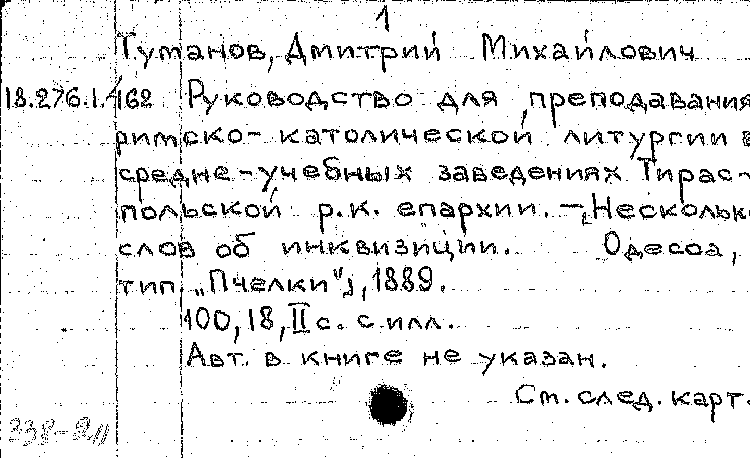 1
Туманов, Дмитрий Михайлович
18.276.1.462 Руководство для преподавания
римско-католической литургии в
средне-учебных заведениях Тирас-
польской р.к. епархии. — Несколько
слов об инквизиции. Одесса,
тип. „Пчелки", 1889.
100, 18, II с. с илл.
Авт. в книге не указан.
См. след. карт.